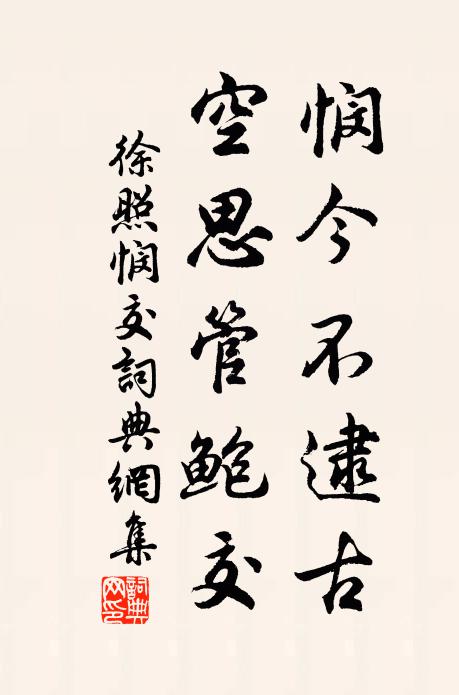 憫今不逮古
空思管鮑交
徐照憫交詞典網集
詞典網印